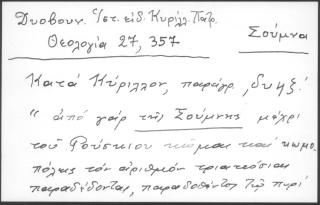 Δυοβουν. Ἱστ. εἰδ. Κυρίλλ. Πατρ.
Θεολογία 27, 357
Σούμνα
Κατά Κύριλλον, παράγρ. ͵δυηξ΄
"ἀπό γάρ τῆς Σούμνης μέχρι
τοῦ Ρούσκιου κῶμαι καί κωμο-
πόλεις τόν ἀριθμόν τριακόσιαι
παραδέδονται, παραδοθέντος τῷ πυρί